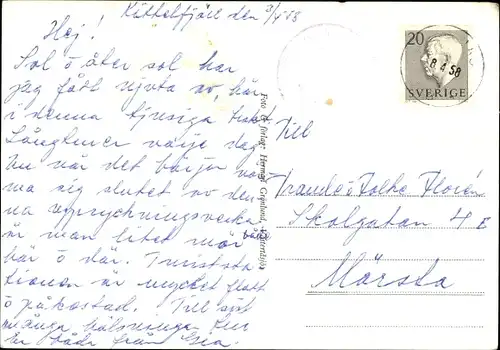 Kittelfjäll den 3/4 58
Hej!
Sol ö åter sol har
jag fått njuta av, här
i denna tjusiga trakt
varje dag
Nu när det börjar när-
ma sig slutet av den-
na
är man litet mör både
här ö där. Turiststa-
tionen är mycket flott
ö påkostad. Till sist
många hälsningar
från
Foto & förlag: Herman Grönlund,
20
SVERIGE
8.4.58
Till
Folke Florén
Skolgatan 4 E
Märsta